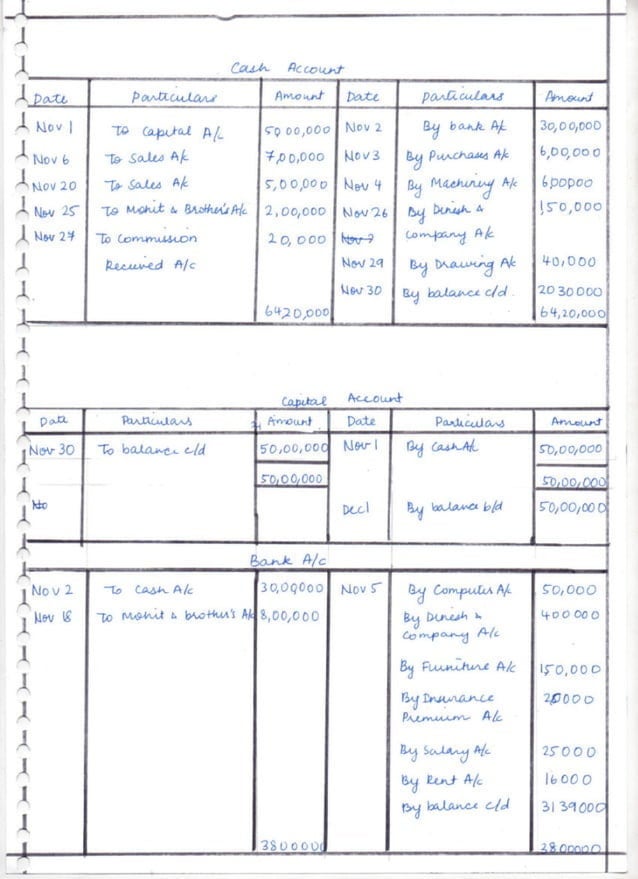 Cash Account
Date Particulars Amount Date Particulars Amount
Nov 1 To Capital A/c 5000,000 Nov 2 By bank A/c 30,00,000
Nov 6 To Sales A/c 7,00,000 Nov 3 By Purchases A/c 6,00,000
Nov 20 To Sales A/c 5,00,000 Nov 4 By Machinery A/c 600000
Nov 25 To Mohit & Brother's A/c 2,00,000 Nov 26 By Dinesh & 150,000
Nov 27 To Commission 20,000 company A/c
Recieved A/c Nov 29 By Drawing A/c 40,000
Nov 30 By balance c/d. 2030000
6420,000 64,20,000
Capital Account
Date Particulars Amount Date Particulars Amount
Nov 30 To balance c/d 50,00,000 Nov 1 By Cash A/c 50,00,000
50,00,000 50,00,000
Dec 1 By balance b/d 50,00,000
Bank A/c
Nov 2 To Cash A/c 30,00000 Nov 5 By Computer A/c 50,000
Nov 18 To Mohit & brother's A/c 8,00,000 By Dinesh & 400000
Company A/c
By Furniture A/c 150,000
By Insurance 20000
Premium A/c
By Salary A/c 25000
By Rent A/c 16000
By balance c/d 3139000
3800000 3800000